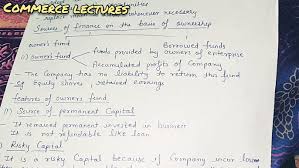 COMMERCE LECTURES
whenever necessary
Source of finance on the basis of ownership
owner's fund Borrowed funds
(i) owner's fund funds provided by owners of enterprise
Accumulated profits of Company
The Company has no liability to return this fund
Eg Equity shares, retained earnings
features of owners fund
(1) Source of permanent Capital
It remained permanent invested in business
It is not refundable like loan
Risky Capital
It is a risky Capital because if Company incur loses